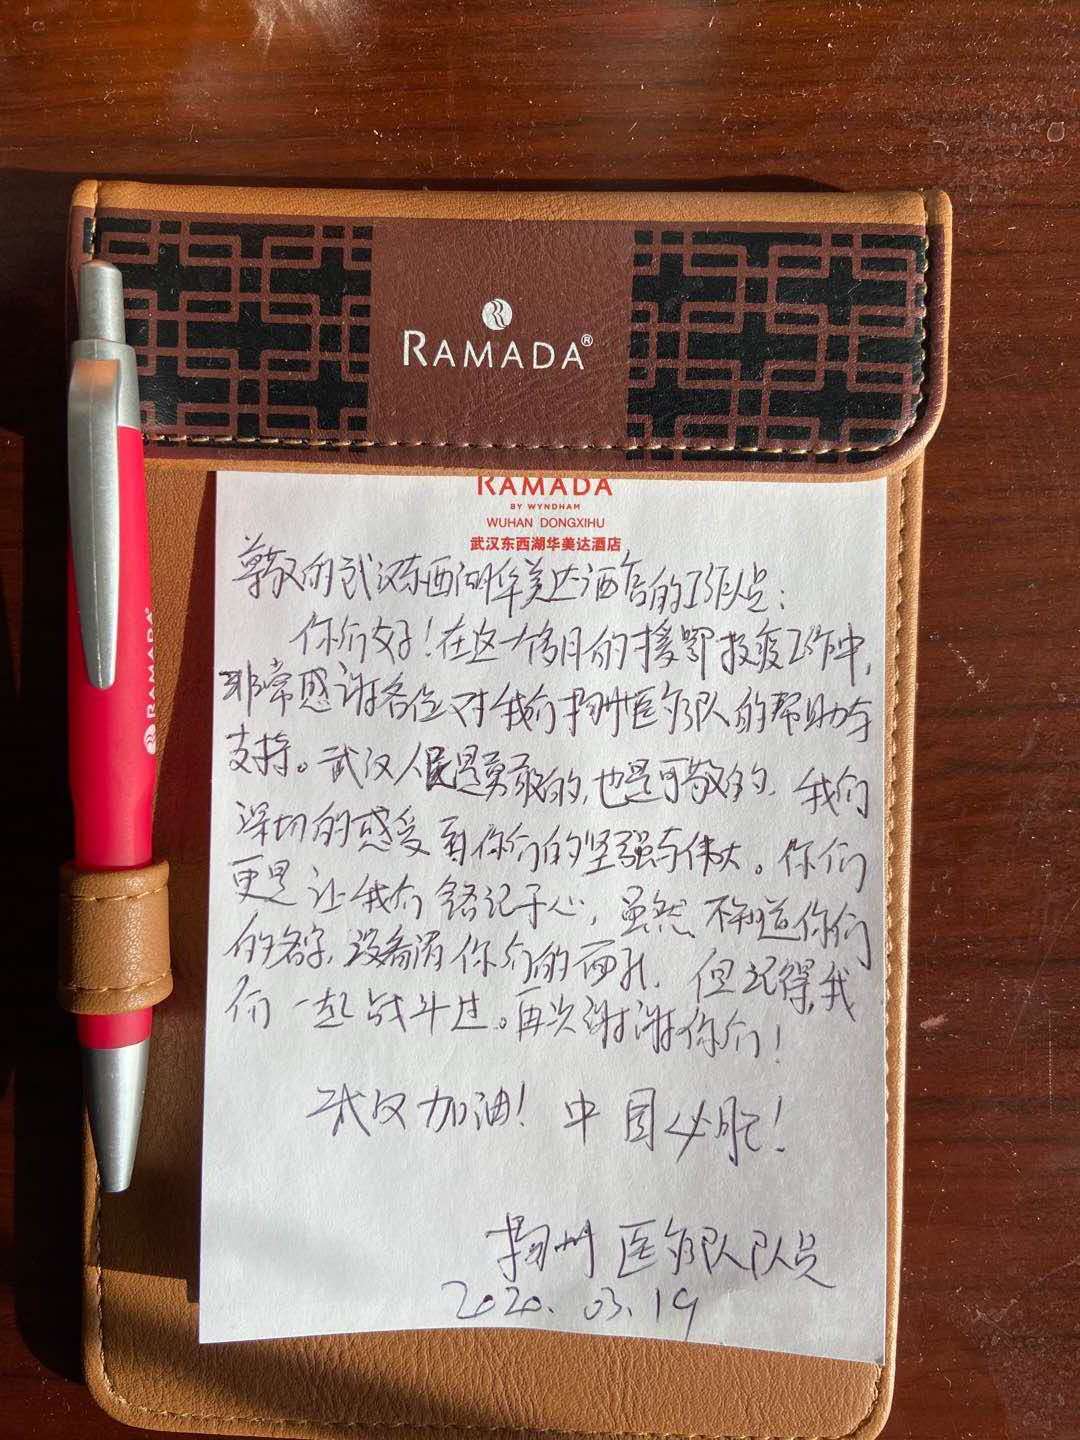 RAMADA®
RAMADA®
RAMADA
BY WYNDHAM
WUHAN DONGXIHU
武汉东西湖华美达酒店
尊敬的武汉东西湖华美达酒店的工作人员：
你们好！在这一个多月的援鄂抗疫工作中，
非常感谢各位对我们扬州医疗队的帮助与
支持。武汉人民是勇敢的，也是可敬的，我们
深切的感受到你们的坚强与伟大。你们
更是让我们铭记于心，虽然不知道你们
的名字，没看清你们的面孔，但记得，我
们一起战斗过。再次谢谢你们！
武汉加油！中国必胜！
扬州医疗队队员
2020.03.19